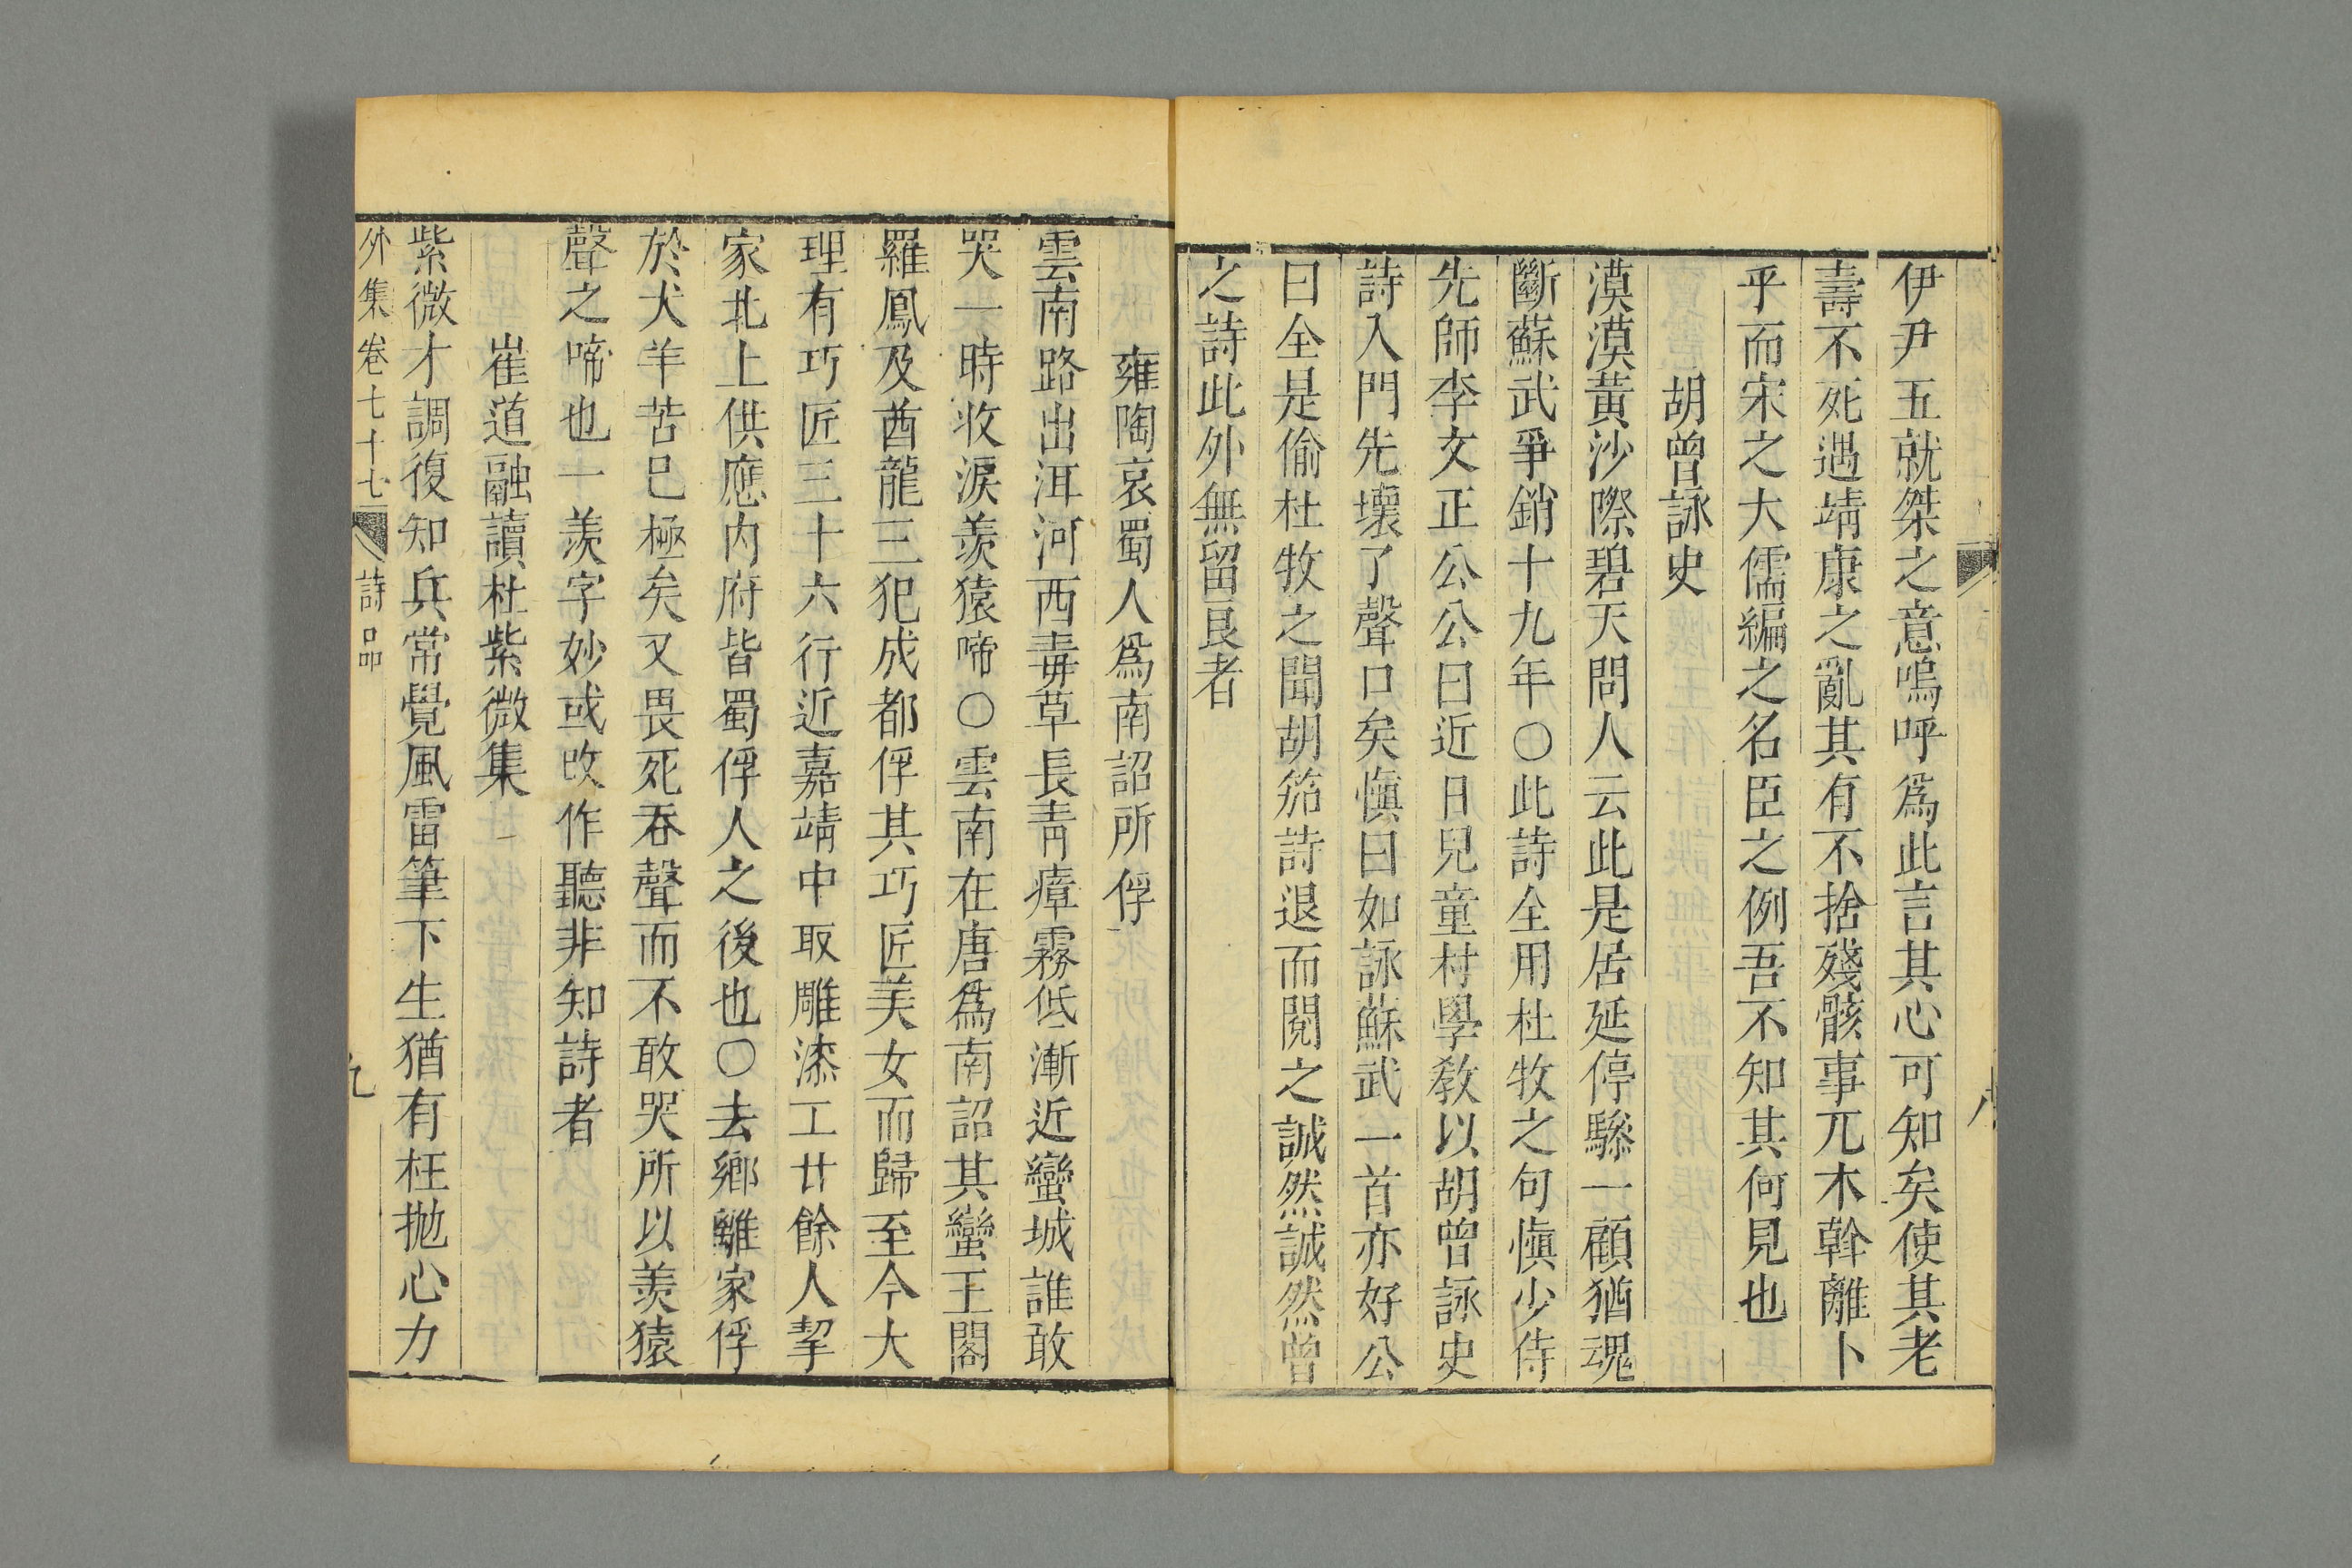 伊尹五就桀之意嗚呼爲此言其心可知矣使其老
壽不死遇靖康之亂其有不捨殘骸事兀木斡離卜
乎而宋之大儒編之名臣之例吾不知其何見也
胡曾詠史
漠漠黃沙際碧天問人云此是居延停驂一顧猶魂
斷蘇武爭銷十九年○此詩全用杜牧之句愼少侍
先師李文正公公曰近日兒童村學敎以胡曾詠史
詩入門先壞了聲口矣愼曰如詠蘇武一首亦好公
曰全是偷杜牧之聞胡笳詩退而閱之誠然誠然曾
之詩此外無留良者
八
雍陶哀蜀人爲南詔所俘
雲南路出洱河西毒草長靑瘴霧低漸近蠻城誰敢
哭一時收淚羨猿啼○雲南在唐爲南詔其蠻王閣
羅鳳及酋龍三犯成都俘其巧匠美女而歸至今大
理有巧匠三十六行近嘉靖中取雕漆工廿餘人挈
家北上供應内府皆蜀俘人之後也○去鄕離家俘
於犬羊苦已極矣又畏死吞聲而不敢哭所以羨猿
聲之啼也一羨字妙或改作聽非知詩者
崔道融讀杜紫微集
紫微才調復知兵常覺風雷筆下生猶有枉抛心力
外集卷七十七 詩品 九